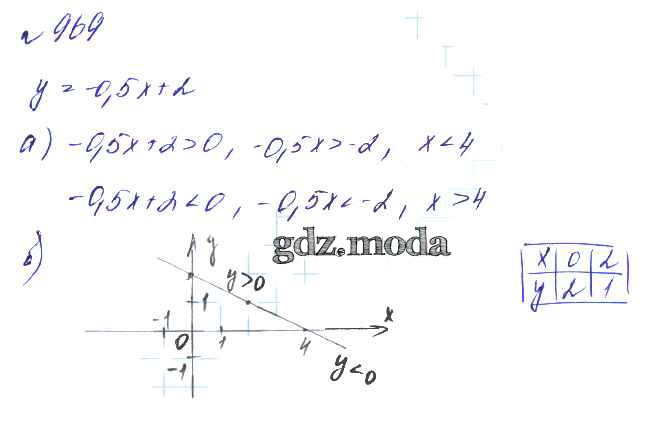 № 969
y = -0,5x+2
а) -0,5x+2>0, -0,5x>-2, x<4
-0,5x+2<0, -0,5x<-2, x>4
gdz.moda
б)
y
y>0
1
x
-1 0 1 4
-1
y<0
x 0 2
y 2 1